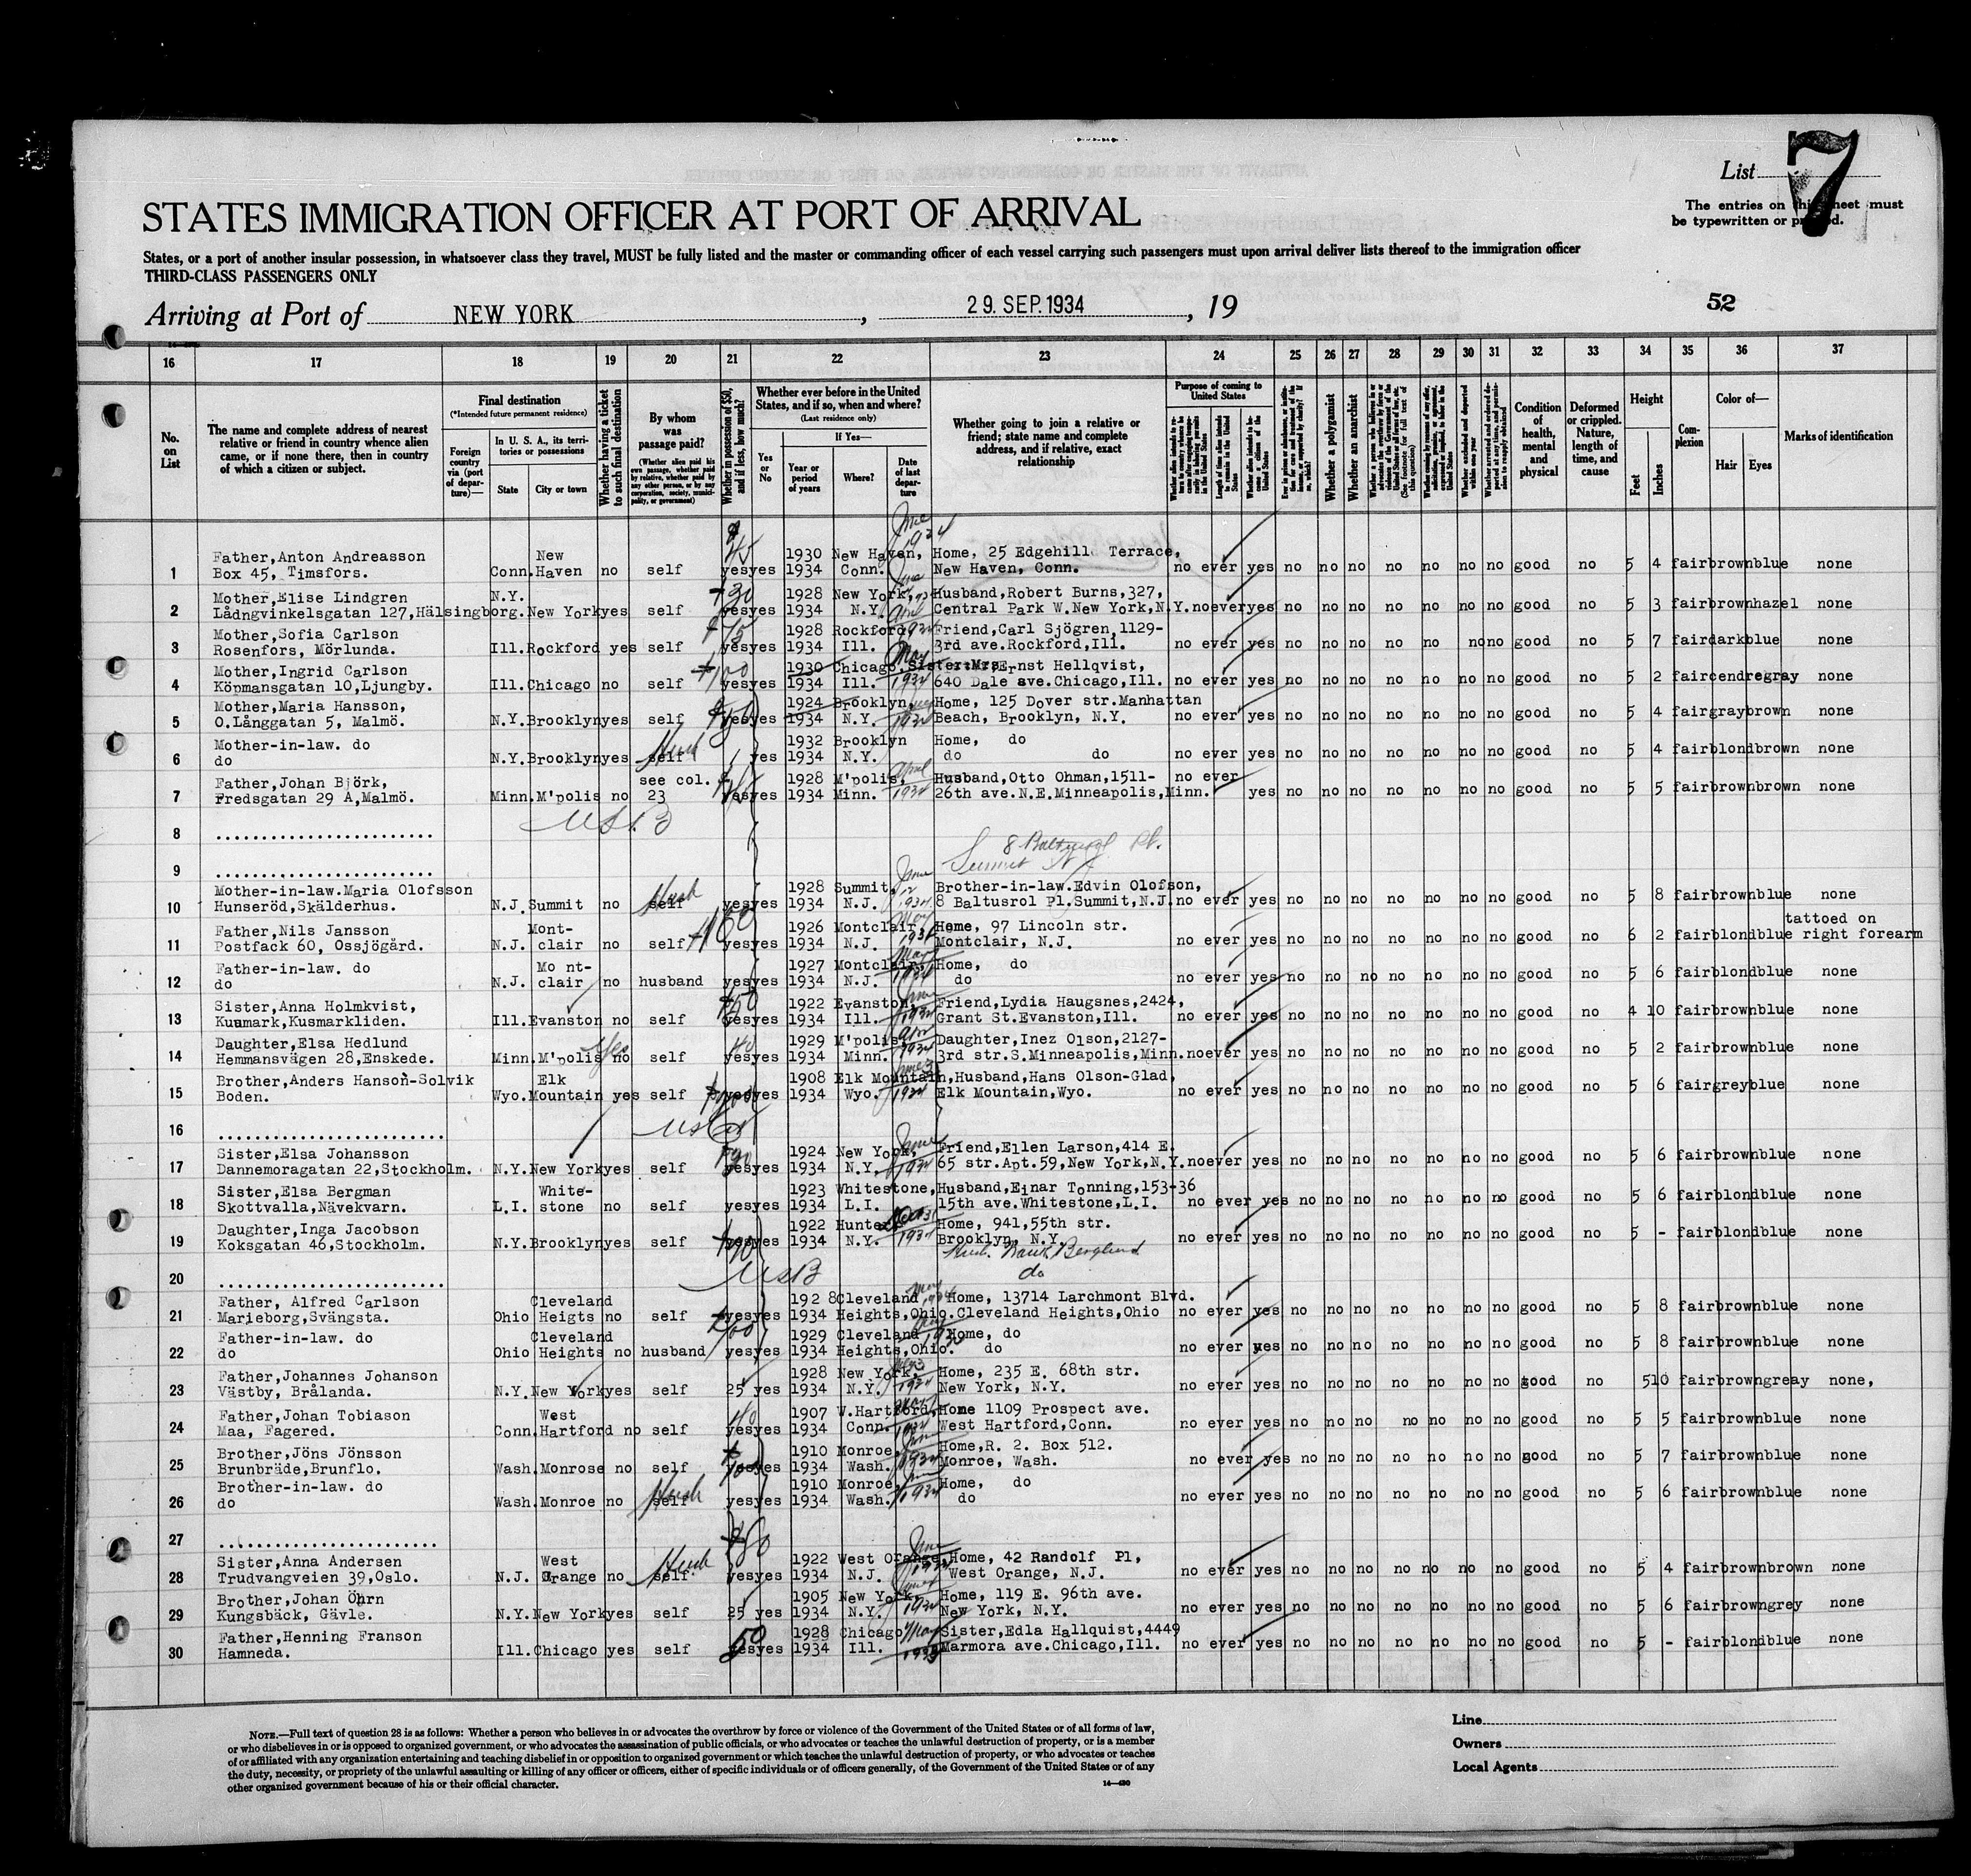 List 7
The entries on this sheet must
be typewritten or printed.
STATES IMMIGRATION OFFICER AT PORT OF ARRIVAL
States, or a port of another insular possession, in whatsoever class they travel, MUST be fully listed and the master or commanding officer of each vessel carrying such passengers must upon arrival deliver lists thereof to the immigration officer
THIRD-CLASS PASSENGERS ONLY
Arriving at Port of NEW YORK, 29. SEP. 1934, 19 52
16 17 18 19 20 21 22 23 24 25 26 27 28 29 30 31 32 33 34 35 36 37
No. on List
The name and complete address of nearest
relative or friend in country whence alien
came, or if none there, then in country
of which a citizen or subject.
Final destination
(*Intended future permanent residence)
Foreign country via (port of departure)—
In U. S. A., its territories or possessions
State City or town
Whether having a ticket to such final destination
By whom was passage paid?
(Whether alien paid his own passage, whether paid by relative, whether paid by any other person, or by any corporation, society, municipality, or government)
Whether in possession of $50, and if less, how much?
Whether ever before in the United
States, and if so, when and where?
(Last residence only)
Yes or No
If Yes—
Year or period of years
Where?
Date of last departure
Whether going to join a relative or
friend; state name and complete
address, and if relative, exact
relationship
Purpose of coming to United States
Whether a polygamist
Whether an anarchist
Condition of health, mental and physical
Deformed or crippled. Nature, length of time, and cause
Height
Feet Inches
Complexion
Color of—
Hair Eyes
Marks of identification
Father,Anton Andreasson New 1930 New Haven, Home, 25 Edgehill Terrace,
1 Box 45, Timsfors. Conn. Haven no self yes yes 1934 Conn. New Haven, Conn. no ever yes no no no no no no no good no 5 4 fair brown blue none
Mother,Elise Lindgren N.Y. 1928 New York, Husband,Robert Burns,327,
2 Lådngvinkelsgatan 127,Hälsingborg. New York yes self yes yes 1934 N.Y. Central Park W.New York,N.Y. no ever yes no no no no no no no good no 5 3 fair brown hazel none
Mother,Sofia Carlson 1928 Rockford, Friend,Carl Sjögren,1129-
3 Rosenfors, Mörlunda. Ill. Rockford yes self yes yes 1934 Ill. 3rd ave.Rockford,Ill. no ever yes no no no no no no no good no 5 7 fair dark blue none
Mother,Ingrid Carlson 1930 Chicago, Sister:Mrs Ernst Hellqvist,
4 Köpmansgatan 10,Ljungby. Ill. Chicago no self yes yes 1934 Ill. 640 Dale ave.Chicago,Ill. no ever yes no no no no no no no good no 5 2 fair cendre gray none
Mother,Maria Hansson, 1924 Brooklyn, Home, 125 Dover str.Manhattan
5 O.Långgatan 5, Malmö. N.Y. Brooklyn yes self yes yes 1934 N.Y. Beach, Brooklyn, N.Y. no ever yes no no no no no no no good no 5 4 fair gray brown none
Mother-in-law. do 1932 Brooklyn Home, do
6 do N.Y. Brooklyn yes self Husb yes 1934 N.Y. do do no ever yes no no no no no no no good no 5 4 fair blond brown none
Father,Johan Björk, see col. 1928 M'polis, Husband,Otto Ohman,1511- no ever
7 Fredsgatan 29 A,Malmö. Minn. M'polis no 23 yes yes 1934 Minn. 26th ave.N.E.Minneapolis,Minn. yes no no no no no no no good no 5 5 fair brown brown none
8 ........................ USB
8 Baltusrol Pl.
9 ........................ Summit N J
Mother-in-law.Maria Olofsson 1928 Summit, Brother-in-law.Edvin Olofson,
10 Hunseröd,Skälderhus. N.J. Summit no self Husb yes yes 1934 N.J. 8 Baltusrol Pl.Summit,N.J. no ever yes no no no no no no no good no 5 8 fair brown blue none
Father,Nils Jansson Mont- 1926 Montclair, Home, 97 Lincoln str. tattoed on
11 Postfack 60, Ossjögård. N.J. clair no self yes yes 1934 N.J. Montclair, N.J. no ever yes no no no no no no no good no 6 2 fair blond blue right forearm
Father-in-law. do Mo nt- 1927 Montclair, Home, do
12 do N.J. clair no husband yes yes 1934 N.J. do no ever yes no no no no no no no good no 5 6 fair blond blue none
Sister,Anna Holmkvist, 1922 Evanston, Friend,Lydia Haugsnes,2424,
13 Kusmark,Kusmarkliden. Ill. Evanston no self yes yes 1934 Ill. Grant St.Evanston,Ill. no ever yes no no no no no no no good no 4 10 fair brown blue none
Daughter,Elsa Hedlund 1929 M'polis, Daughter,Inez Olson,2127-
14 Hemmansvägen 28,Enskede. Minn. M'polis no yes self yes yes 1934 Minn. 3rd str.S.Minneapolis,Minn. no ever yes no no no no no no no good no 5 2 fair brown blue none
Brother,Anders Hanson-Solvik Elk 1908 Elk Mountain, Husband,Hans Olson-Glad,
15 Boden. Wyo. Mountain yes self yes yes 1934 Wyo. Elk Mountain,Wyo. no ever yes no no no no no no no good no 5 6 fair grey blue none
16 .........................
Sister,Elsa Johansson 1924 New York, Friend,Ellen Larson,414 E.
17 Dannemoragatan 22,Stockholm. N.Y. New York yes self yes yes 1934 N.Y. 65 str.Apt.59,New York,N.Y. no ever yes no no no no no no no good no 5 6 fair brown blue none
Sister,Elsa Bergman White- 1923 Whitestone, Husband,Einar Tonning,153-36
18 Skottvalla,Nävekvarn. L.I. stone no self yes yes 1934 L.I. 15th ave.Whitestone,L.I. no ever yes no no no no no no no good no 5 6 fair blond blue none
Daughter,Inga Jacobson 1922 Hunter Home, 941,55th str.
19 Koksgatan 46,Stockholm. N.Y. Brooklyn yes self yes yes 1934 N.Y. Brooklyn, N.Y. no ever yes no no no no no no no good no 5 - fair blond blue none
Husb. Berglund
20 ......................... USB do
Father, Alfred Carlson Cleveland 192 8 Cleveland Home, 13714 Larchmont Blvd.
21 Marieborg,Svängsta. Ohio Heigts no self yes yes 1934 Heights,Ohio. Cleveland Heights,Ohio no ever yes no no no no no no no good no 5 8 fair brown blue none
Father-in-law. do Cleveland 1929 Cleveland Home, do
22 do Ohio Heights no husband yes yes 1934 Heights,Ohio. do no ever yes no no no no no no no good no 5 8 fair brown blue none
Father,Johannes Johanson 1928 New York, Home, 235 E. 68th str.
23 Västby, Brålanda. N.Y. New York yes self 25 yes 1934 N.Y. New York, N.Y. no ever yes no no no no no no no good no 5 10 fair brown greay none,
Father,Johan Tobiason West 1907 W.Hartford, Home 1109 Prospect ave.
24 Maa, Fagered. Conn. Hartford no self yes yes 1934 Conn. West Hartford,Conn. no ever yes no no no no no no no good no 5 5 fair brown blue none
Brother,Jöns Jönsson 1910 Monroe, Home,R. 2. Box 512.
25 Brunbräde,Brunflo. Wash. Monrose no self yes yes 1934 Wash. Monroe, Wash. no ever yes no no no no no no no good no 5 7 fair brown blue none
Brother-in-law. do 1910 Monroe, Home, do
26 do Wash. Monroe no self Husb yes yes 1934 Wash. do no ever yes no no no no no no no good no 5 6 fair brown blue none
27 ........................
Sister,Anna Andersen West 1922 West Orange, Home, 42 Randolf Pl,
28 Trudvangveien 39,Oslo. N.J. Orange no self Husb yes yes 1934 N.J. West Orange, N.J. no ever yes no no no no no no no good no 5 4 fair brown brown none
Brother,Johan Öhrn 1905 New York, Home, 119 E. 96th ave.
29 Kungsbäck, Gävle. N.Y. New York yes self 25 yes 1934 N.Y. New York, N.Y. no ever yes no no no no no no no good no 5 6 fair brown grey none
Father,Henning Franson 1928 Chicago Sister,Edla Hallquist,4449
30 Hamneda. Ill. Chicago yes self 50 yes yes 1934 Ill. Marmora ave.Chicago,Ill. no ever yes no no no no no no no good no 5 - fair blond blue none
NOTE.—Full text of question 28 is as follows: Whether a person who believes in or advocates the overthrow by force or violence of the Government of the United States or of all forms of law,
or who disbelieves in or is opposed to organized government, or who advocates the assassination of public officials, or who advocates or teaches the unlawful destruction of property, or is a member
of or affiliated with any organization entertaining and teaching disbelief in or opposition to organized government or which teaches the unlawful destruction of property, or who advocates or teaches
the duty, necessity, or propriety of the unlawful assaulting or killing of any officer or officers, either of specific individuals or of officers generally, of the Government of the United States or of any
other organized government because of his or their official character.
14—430
Line
Owners
Local Agents